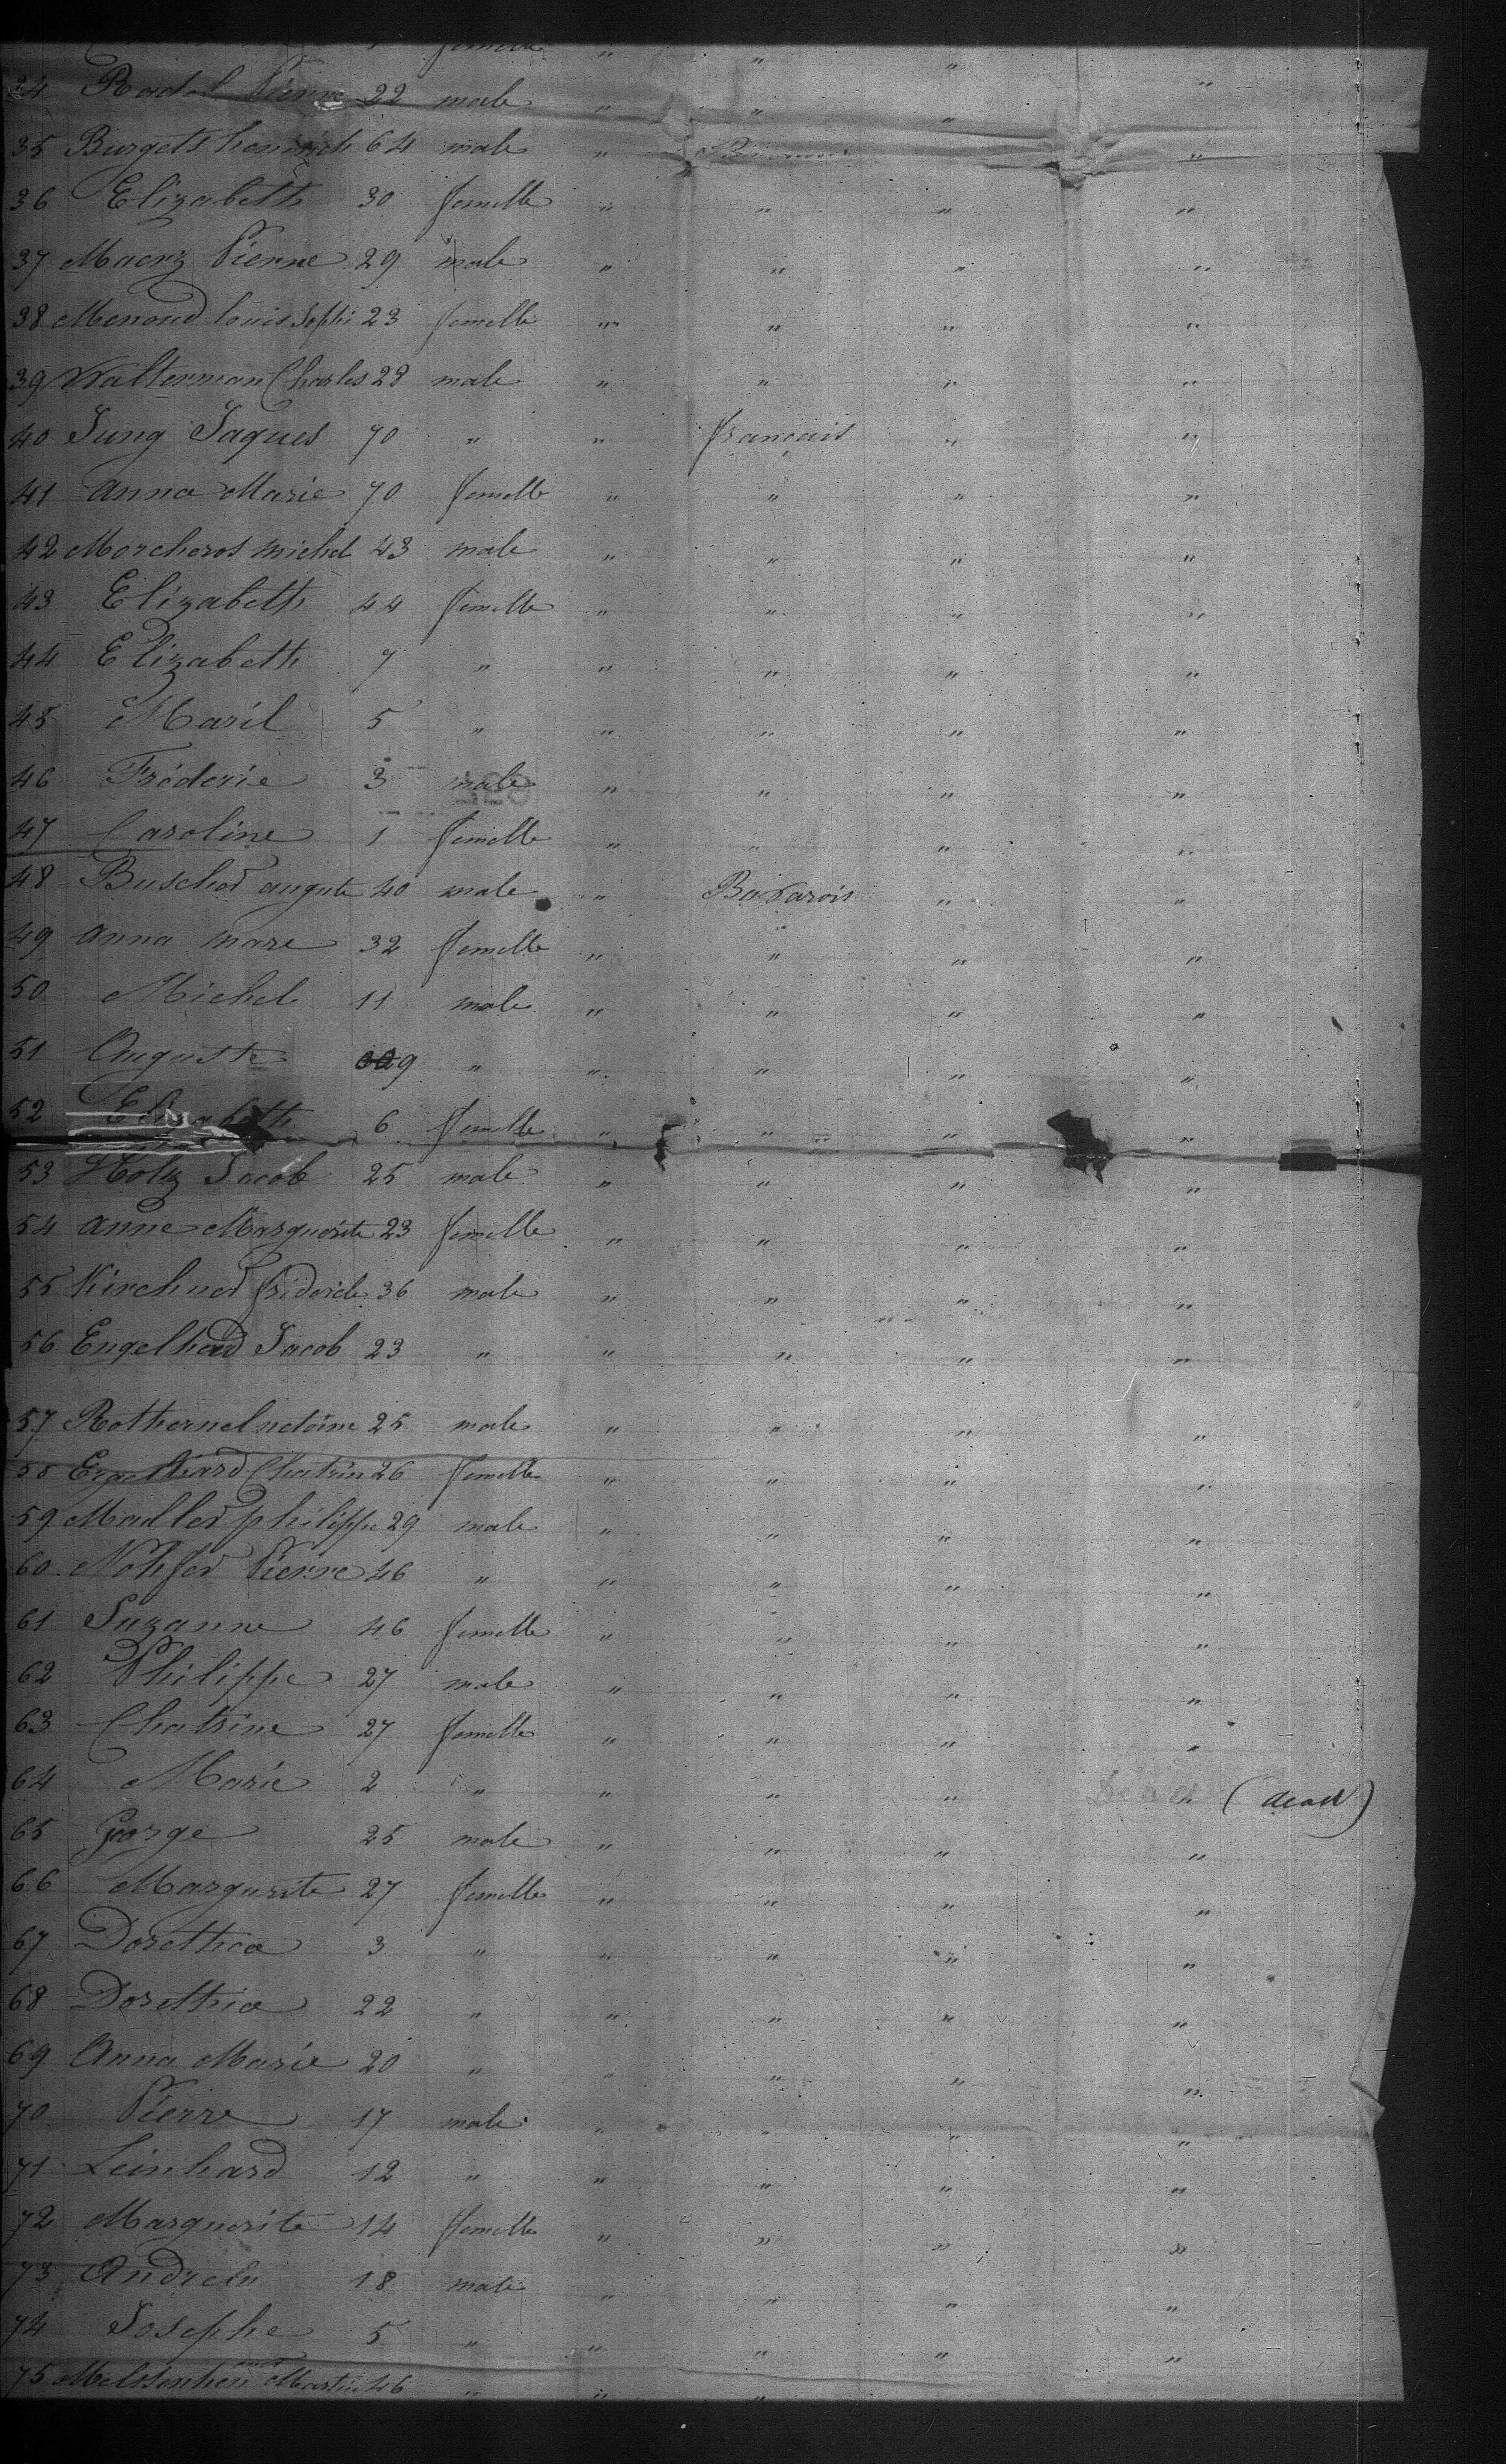 femelle " " " "
34 Radel Pierre 22 male " " " "
35 Burgets 64 male " "
36 Elizabeth 30 femelle " " " "
37 Maerz Pierre 29 male " " " "
38 Menoud louis Sophi 23 femelle " " " "
39 Walterman Charles 28 male " " " "
40 Jung Jaques 70 " " français " "
41 anna Marie 70 femelle " " " "
42 michel 43 male " " " "
43 Elizabeth 44 femelle " " " "
44 Elizabeth 7 " " " " "
45 Maril 5 " " " " "
46 Fréderie 3 male " " " "
47 Caroline 1 femelle " " " "
48 Buscher auguste 40 male " Bavarois " "
49 anna mare 32 femelle " " " "
50 Michel 11 male " " " "
51 Auguste 9 " " " " "
52 Elizabeth 6 femelle " " " "
53 Holz Jacob 25 male " " " "
54 anne Marguerite 23 femelle " " " "
55 Kirchner friderich 36 male " " " "
56 Engelhard Jacob 23 " " " " "
57 25 male " " " "
58 Engelhard Chatrin 26 femelle " " " "
59 Madler philippe 29 male " " " "
60 Pierre 46 " " " " "
61 Suzanne 46 femelle " " " "
62 Philippe 27 male " " " "
63 Chatrine 27 femelle " " " "
64 Marie 2 " " " " Dead " (dead)
65 George 25 male " " " "
66 Marguerite 27 femelle " " " "
67 Dorethea 3 " " " " "
68 Dorethia 22 " " " " "
69 Anna Marie 20 " " " " "
70 Pierre 17 male " " " "
71 Leinhard 12 " " " " "
72 Marguerite 14 femelle " " " "
73 18 male " " " "
74 Josephe 5 " " " " "
75 Martin 46 " " "